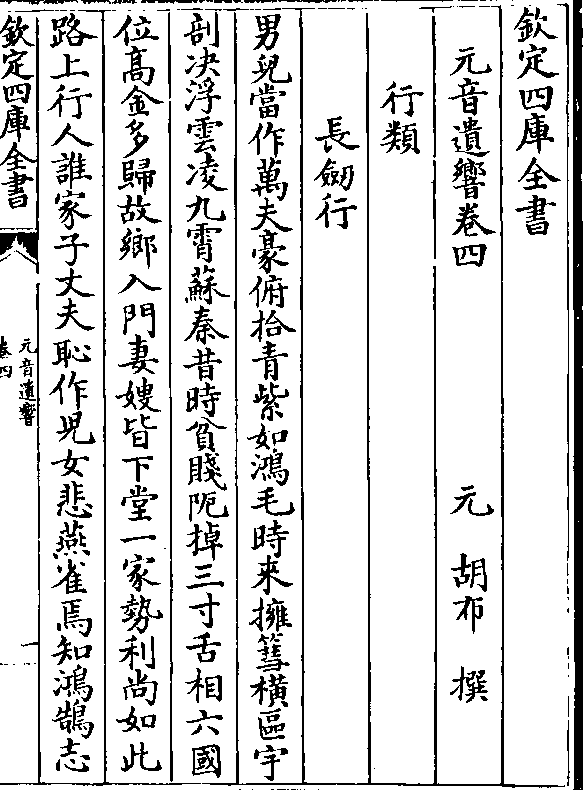 欽定四庫全書
元音遺響卷四
元 胡布 撰
行類
長劒行
男兒當作萬夫豪俯拾青紫如鴻毛時来擁篲横區宇
剖决浮雲凌九霄蘇秦昔時貧賤阨掉三寸舌相六國
位髙金多歸故鄉入門妻嫂皆下堂一家勢利尚如此
路上行人誰家子丈夫恥作兒女悲燕雀焉知鴻鵠志
欽定四庫全書
元音遺響
卷四
一